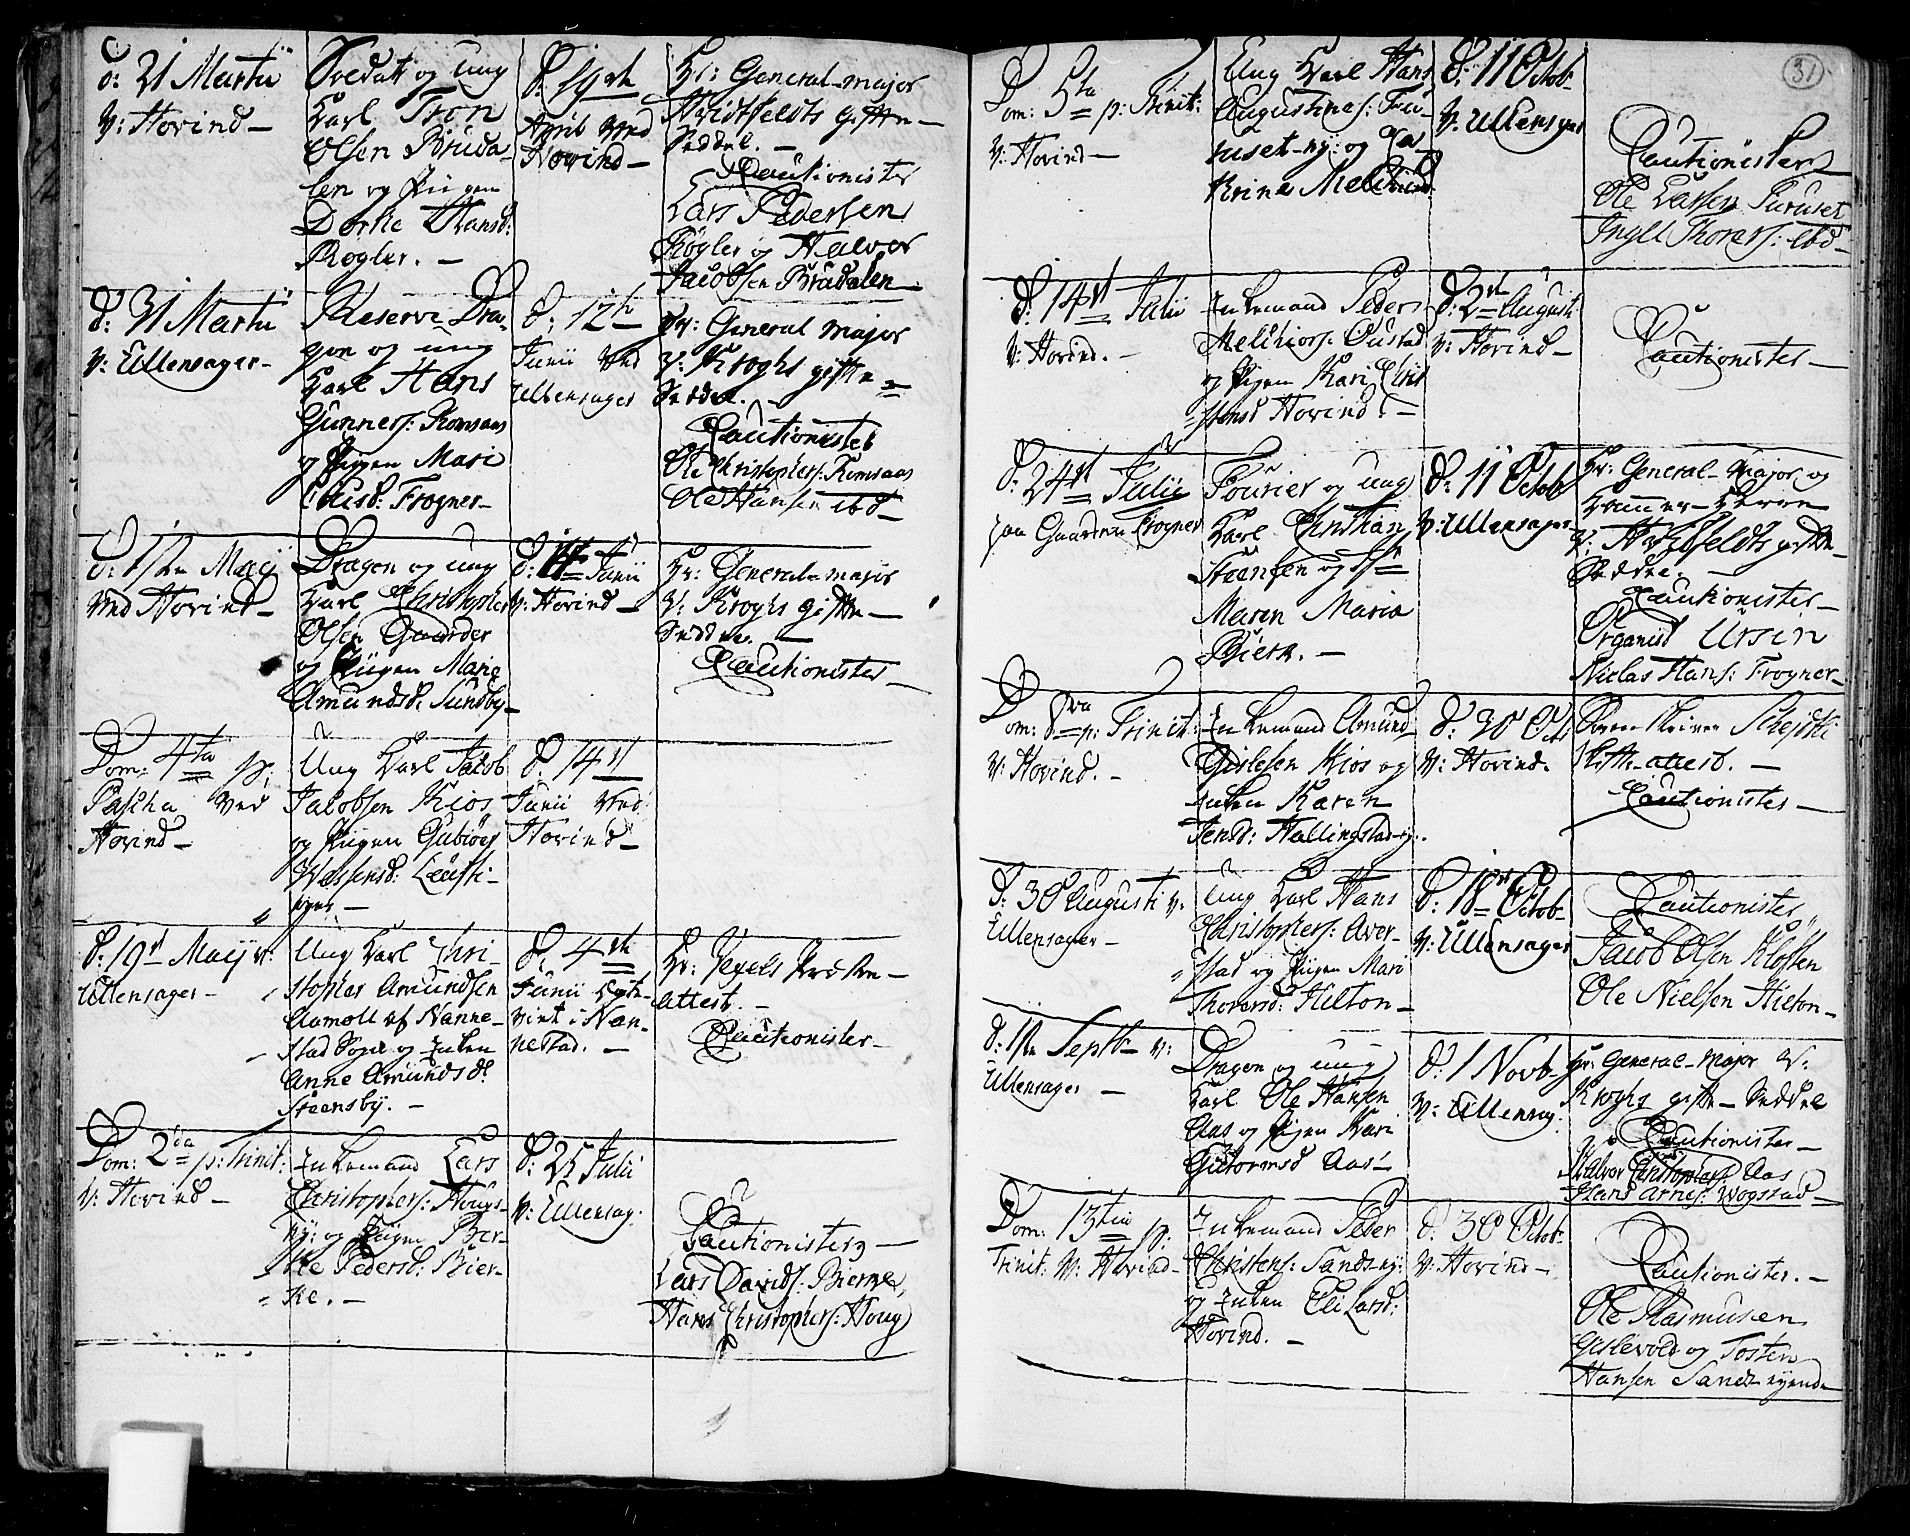 d: 21 Martii
V: Hovind
Soldat og ung
Karl Tron
Olsen Bruda-
len og Pigen
Dorte Hansd:
Røgler.
d: 19de
April ved
Hovind
Hr: General-major
Hvidtfeldts gifte-
Seddel.
Cautionister
Lars Pedersen
Røgler og Halvor
Jacobsen Brudalen
d: 31 Martii
V: Ullensager
Reserve Dra-
gon og ung
Karl Hans
Gunners: Romsaas
og Pigen Mari
Frogner
d: 12te
Junii ved
Ullensager
Hr: General major
V: Kroghs gifte
Seddel.
Cautionister
Ole Christophers: Romsaas
Ole Hansen ibd
d: 1ste Maij
ved Hovind
Dragon og ung
Karl Christopher
Olsen Gaarder
og Pigen Marie
Amundsd: Sundby
d: Junii
V: Hovind
Hr: General-major
V: Kroghs gifte-
Seddel.
Cautionister
Dom: 4ta p:
Pascha ved
Hovind
Ung Karl Jacob
Jacobsen Kios
og Pigen
d: 14de
Junii ved
Hovind
d: 19de Maij v:
Ullensager
Ung Karl Chri-
stopher Amundsen
Aamoll af Nanne-
stad Sogn og Enken
Anne Amundsd:
Steensby.
d: 4de
Junii
viet i Nan-
nestad.
Hr:
Attest.
Cautionister
Dom: 2da p: Trinit:
V: Hovind
Enkemand Lars
Christophers: Houg-
og Pigen Bier-
the Pedersd: Bier-
ke.
d: 25 Julii
V: Ullensag:
Cautionister
Lars Davids: Bierke,
Hans Christophers: Houg
31
Dom: 5ta p: Trinit:
V: Hovind
Ung Karl Hans
Augustines: Fu-
ruset-ny: og Ca-
thrine
d: 11 Octob
V: Ullensager
Cautionister
Ole Larsen Furuset
Ingel Thores: ibd
d: 14de Julii
V: Hovind.
Enkemand Peder
Melchiors:
og Pigen Kari Chri-
stensd Hovind
d: 2de Augusti
V: Hovind
Cautionister
d: 24de Julii
paa Gaarden Frogner
Fourier og ung
Karl Christian
Steensen og
Maren Maria
Bierk.
d: 11 Octob
V: Ullensager
Hr: General-Major og
Kammer-Herre
V: gifte-
Seddel.
Cautionister
Organist Ursin
Niclas Hans: Frogner
Dom: 8va p: Trinit:
V: Hovind.
Enkemand Amund
Gislesen Kios og
Enken Karen
Jensd: Hallingstad-ej:
d: 30 Oct
V: Hovind.
Skifte-attest.
Cautionister
d: 30 Augusti v:
Ullensager
Ung Karl Hans
Christophers: Aver-
stad og Pigen Mari
Thoresd: Hilton
d: 18de Octob
V: Ullensager
Cautionister
Jacob Olsen Kloften
Ole Nielsen Hilton
d: 1ste Septb v:
Ullensager
Dragon og ung
Karl Ole Hansen
Aas og Pigen Kari
Gutormsd Aas
d: 1 Novb
V: Ullensag:
Hr: General-Major V:
Kroghs gifte-Seddel
Cautionister
Halvor Christophers: Aas
Hans Arnes: Wogstad
Dom: 13tia p:
Trinit: V: Hovind
Enkemand Peder
Christens: Sands-ej:
og Enken Eli Larsd:
Hovind.
d: 30 Octob
V: Hovind
Cautionister.
Ole Rasmusen
Gislevold og Tosten
Hansen Sands-ejend